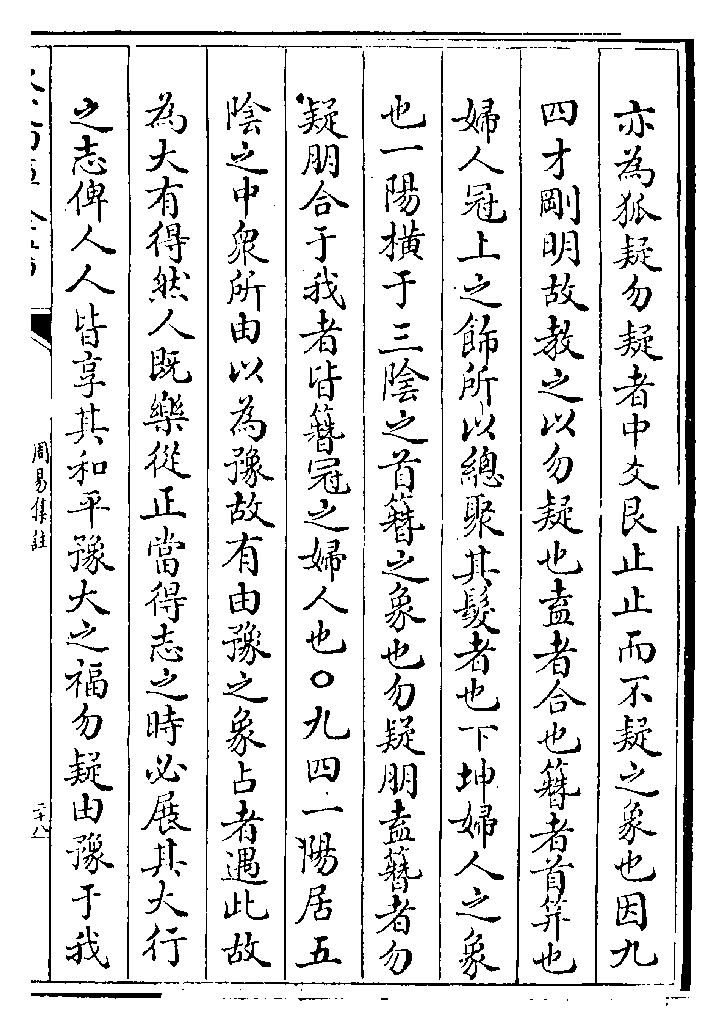 亦為狐疑勿疑者中爻艮止止而不疑之象也因九
四才剛明故教之以勿疑也盍者合也簪者首笄也
婦人冠上之飾所以總聚其髮者也下坤婦人之象
也一陽橫于三陰之首簪之象也勿疑朋盍簪者勿
疑朋合于我者皆簪冠之婦人也○九四一陽居五
陰之中衆所由以為豫故有由豫之象占者遇此故
為大有得然人既樂從正當得志之時必展其大行
之志俾人人皆享其和平豫大之福勿疑由豫于我
周易集註
二十八